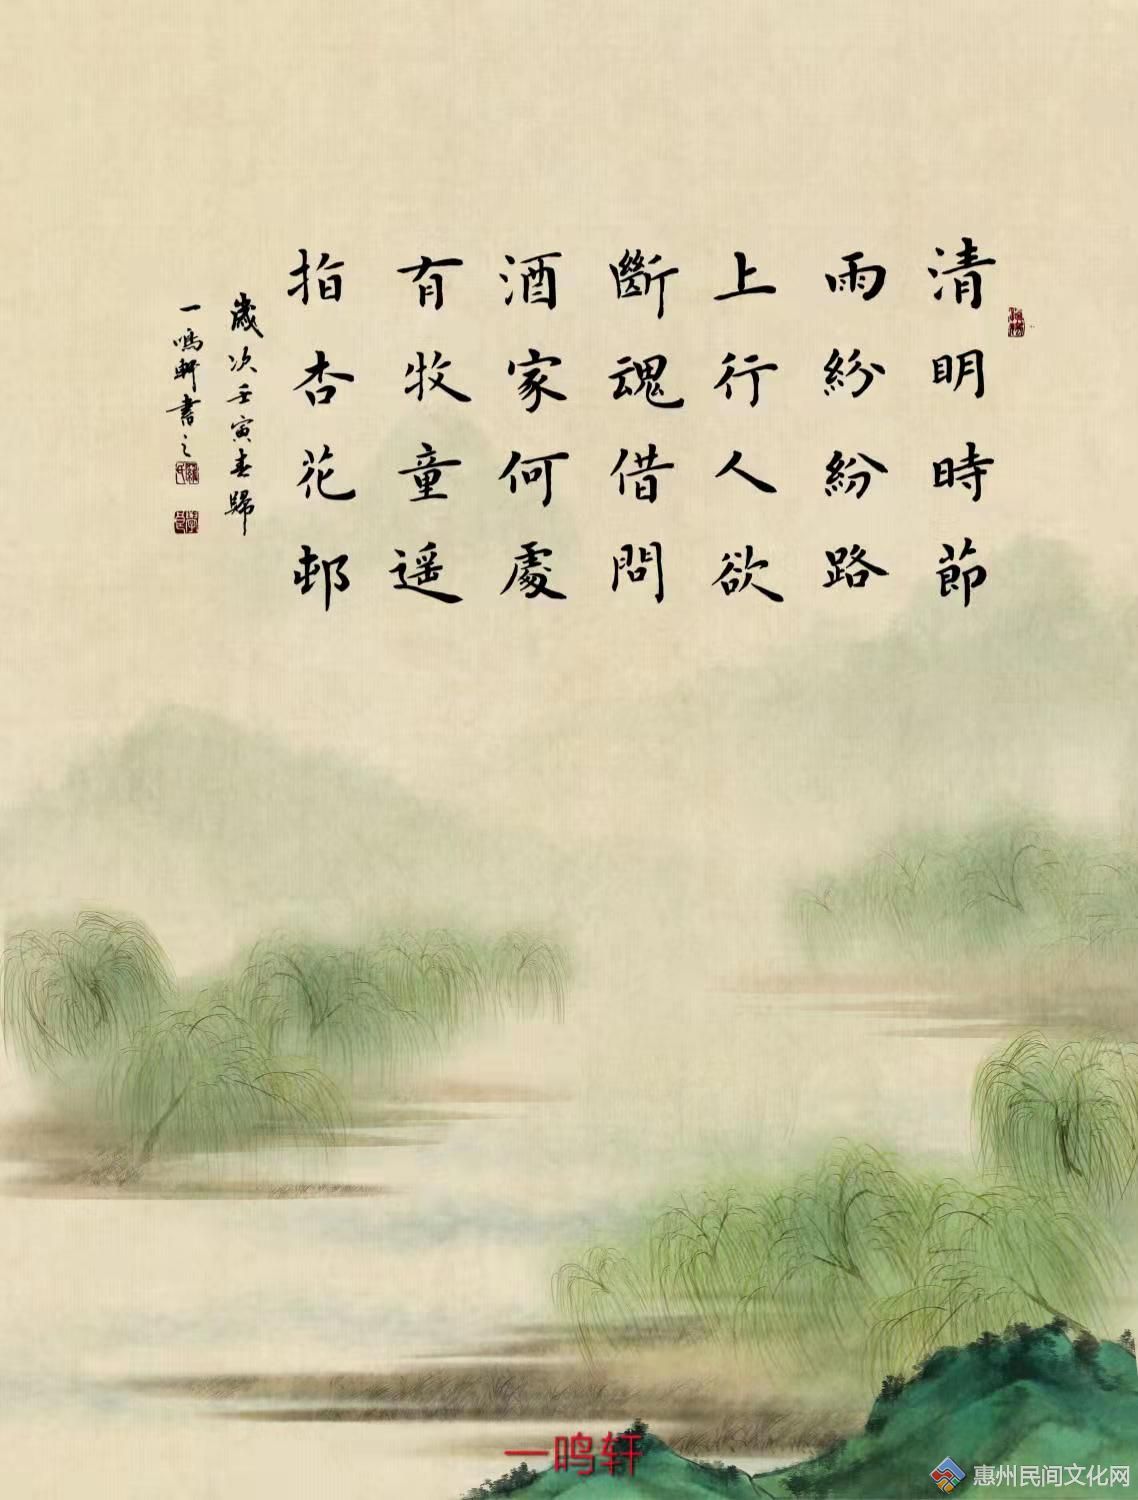 清明時節
雨紛紛路
上行人欲
斷魂借問
酒家何處
有牧童遥
指杏花邨
歲次壬寅春歸
一鳴軒書之
一鸣轩
惠州民间文化网